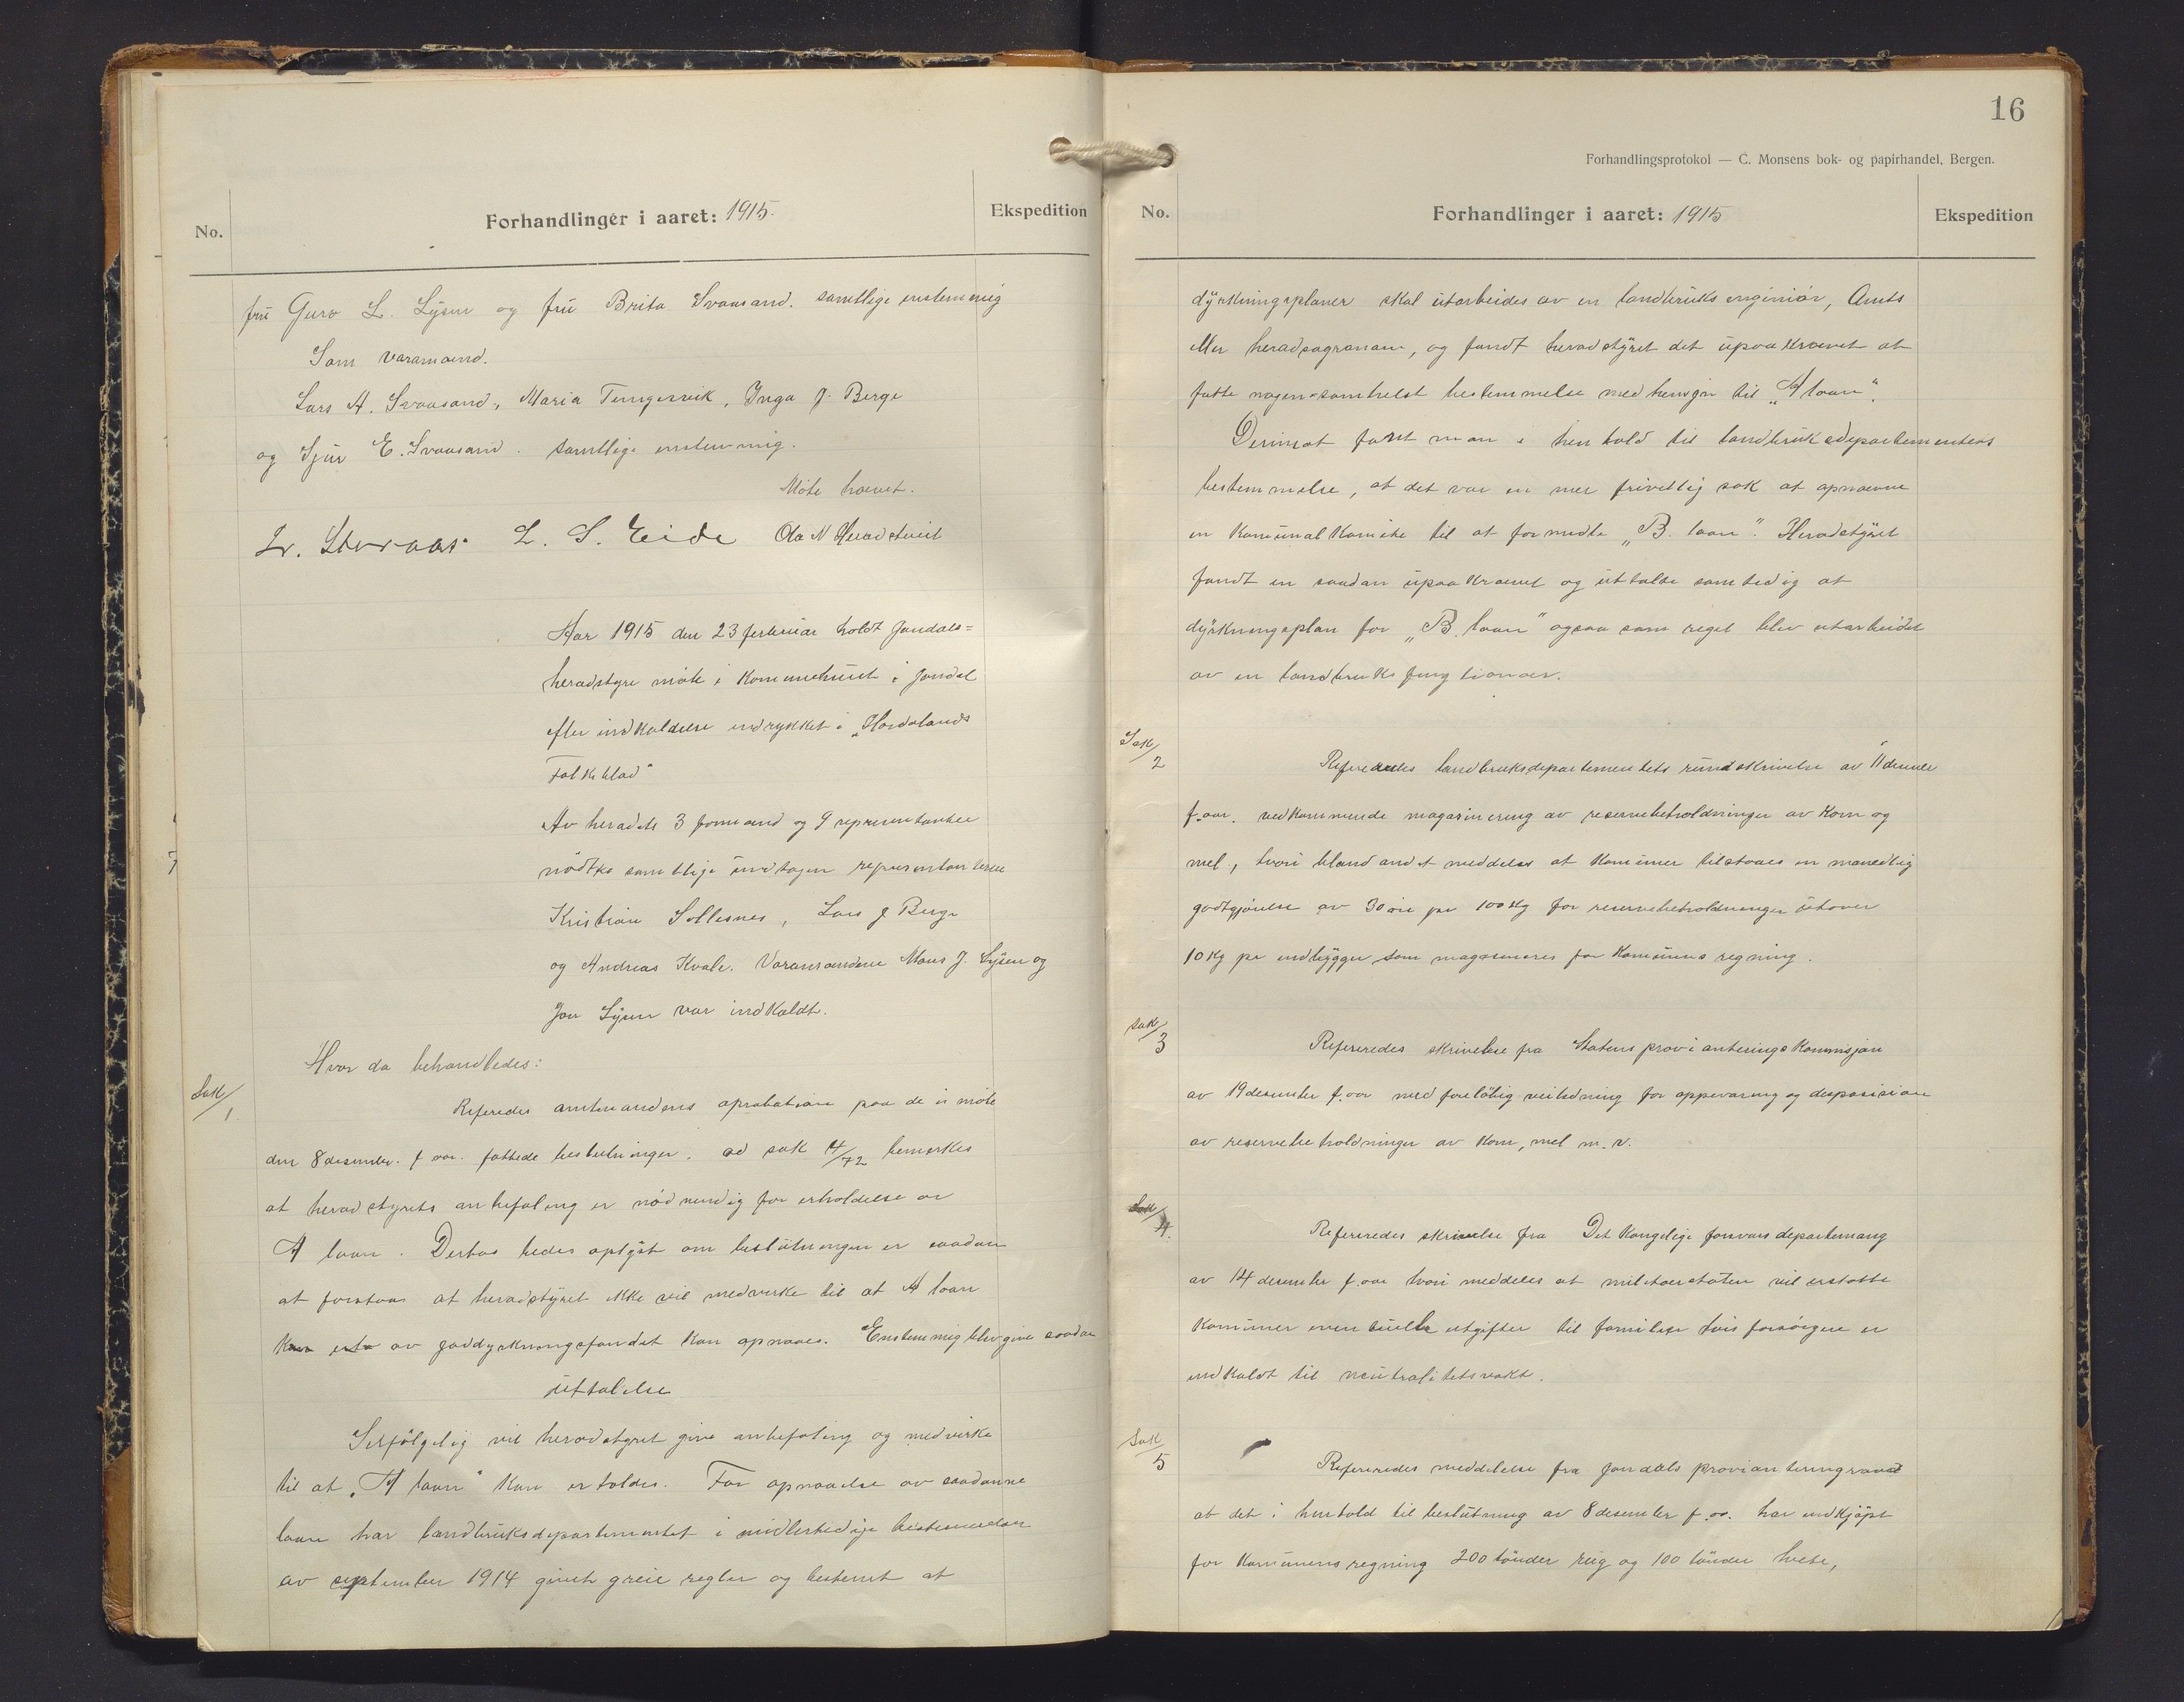 No.
Forhandlinger i aaret: 1915.
Ekspedition
fru Guro L. Lysen og fru Brita Svaasand. samtlige enstemmig
Som varamænd.
Lars A. Svaasand, Maria Tengesvik, Inga J. Berge
og Sjur E. Svaasand. samtlige enstemmig.
Møte hævet.
L. S. Eide Ola N Heradstveit
Aar 1915 den 23 februar holdt Jondals=
heradstyre møte i Komunehuset i Jondal
efter indkaldelse indrykket i „Hordalands
Folkeblad"
Av heradets 3 formænd og 9 representanter
mødtes samtlige undtagen representanterne
Kristian Sollesnes, Lars J Berge
og Andreas Kvale. Varamændene Mons J. Lysen og
Jon Lysen var indkaldt.
Hvor da behandledes:
Sak/1
Referedes amtmandens aprobation paa de i møte
den 8 desember. f. aar. fattede beslutninger. ad sak 4/72 bemerkes
at heradstyrets anbefaling er nødvendig for erholdelse av
A laan. Derhos bedes oplyst om beslutningen er saadan
at forstaa at heradstyret ikke vil medvirke til at A laan
av jorddyrkningsfondet kan opnaaes. Enstemmig blev give saadan
uttalelse
Selfølgelig vil heradstyret give anbefaling og medvirke
til at „A laan" kan erholdes. For opnaaelse av saadanne
laan har landbruksdepartementet i midlertidige bestemmelser
av september 1914 givet greie regler og bestemt at
16
Forhandlingsprotokol — C. Monsens bok- og papirhandel, Bergen.
No.
Forhandlinger i aaret: 1915
Ekspedition
dyrkningsplaner skal utarbeides av en landbruks enginiør, Amts
eller heradsagronom, og fandt heradstyret det upaakrævet at
fatte nogensomhelst bestemmelse med hensyn til „A laan".
Derimot fandt man i henhold til landbruksdepartementets
bestemmelse, at det var en mer frivillig sak at opnævne
en Komunal Komite til at formidle „B. laan". Heradstyret
fandt en saadan upaakrævet og uttalte samtidig at
dyrkningsplan for „B. laan" ogsaa som regel blev utarbeidet
av en landbruks fungtionær.
Sak/2
Refereredes landbruksdepartementets rundskrivelse av 11 desember
f. aar. vedkommende magasinering av reservebeholdninger av Korn og
mel, hvori bland andet meddeles at Komuner tilstaaes en manedlig
godtgjørelse av 30 øre pr 100 Kg for reservebeholdninger utover
10 Kg pr indbygger som magasineres for Komunens regning.
Sak/3
Refereredes skrivelse fra Statens provianteringskommisjon
av 19 desember f. aar med foreløbig veiledning for oppevaring og disposision
av reservebeholdninger av Korn, mel m. v.
Sak/4.
Refereredes skrivelse fra Det Kongelige forsvarsdepartemang
av 14 desember f. aar hvori meddeles at militærstaten vil erstatte
Komuner eventuelle utgifter til familier hvis forsørgere er
indkaldt til neutralitetsvakt.
Sak/5
Refereredes meddelelse fra Jondals provianteringsraad
at det i henhold til beslutning av 8 desember f. aar. har indkjøpt
for Komunens regning 200 tønder rug og 100 tønder hvete,